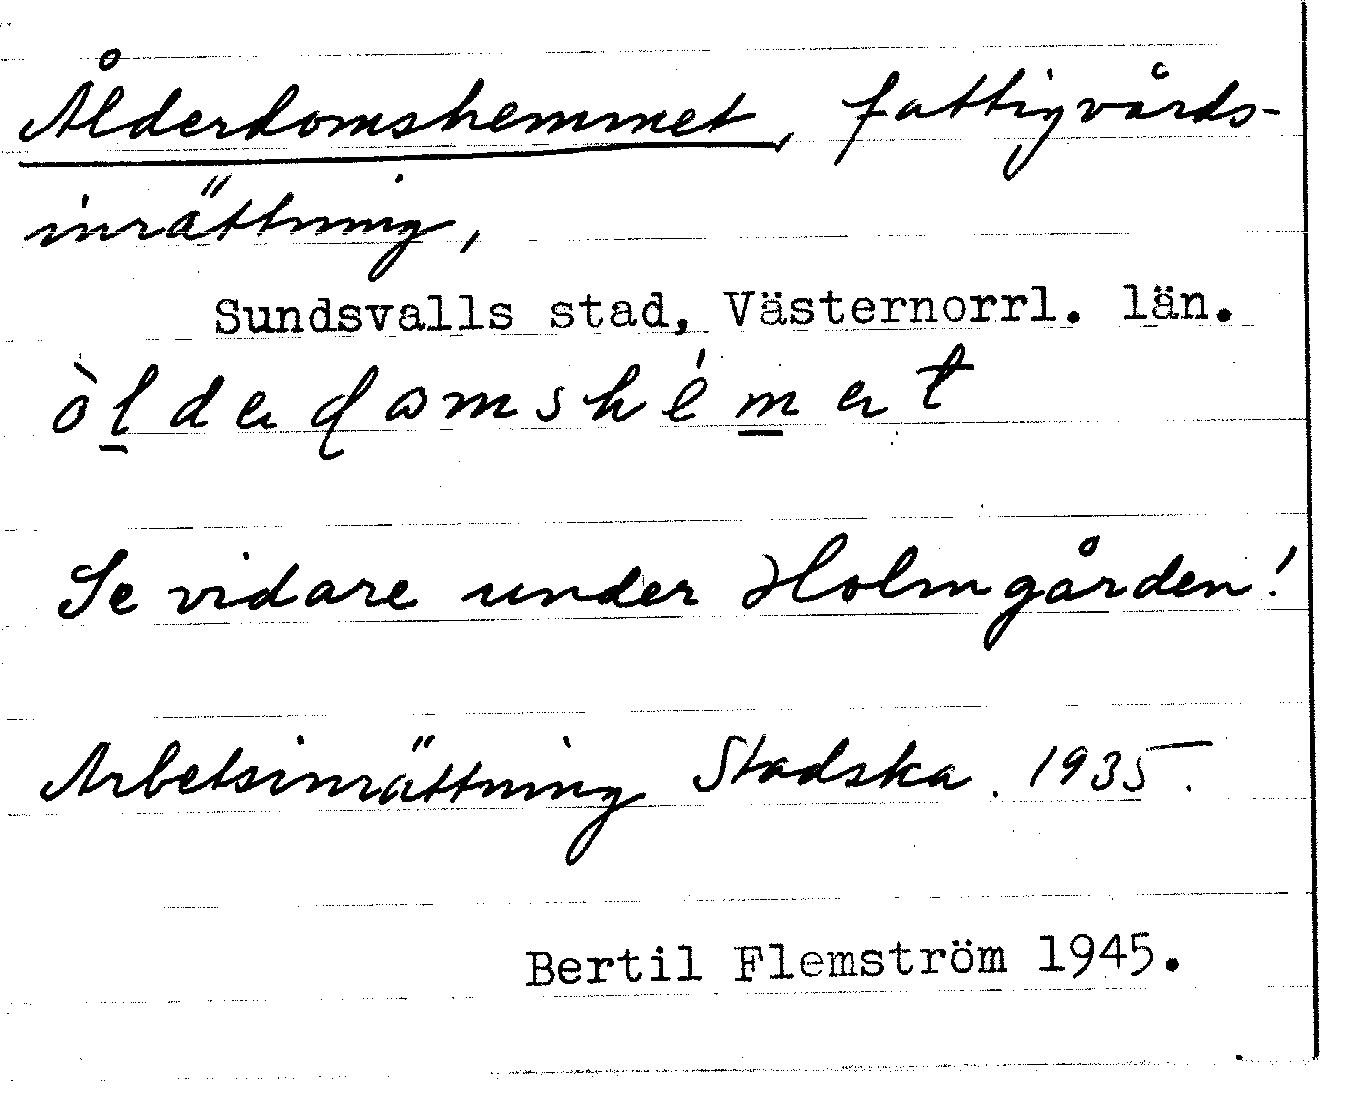 Ålderdomshemmet, fattigvårds-
inrättning,
Sundsvalls stad, Västernorrl. län.
Se vidare under Holmgården!
Arbetsinrättning Stadska. 1935.
Bertil Flemström 1945.